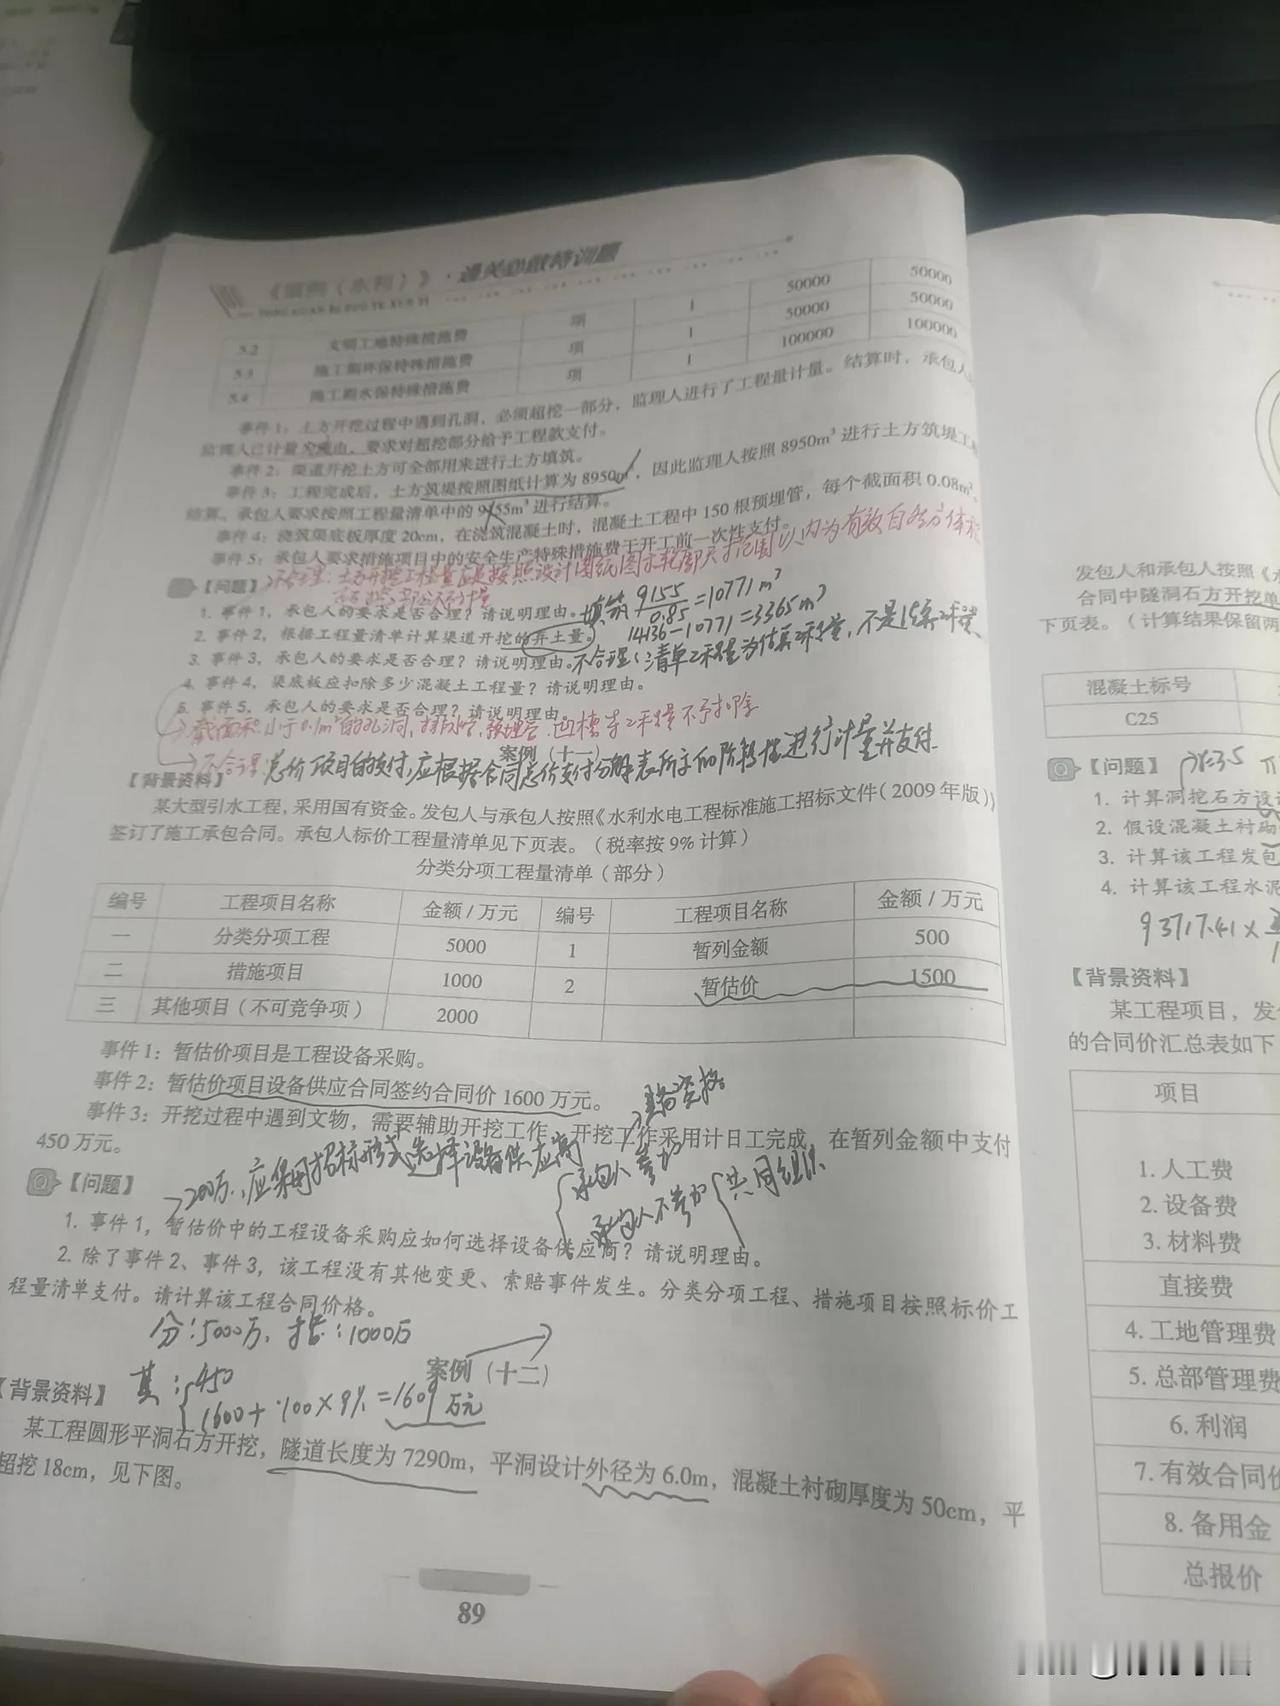 《案例（水利）》·通关必做特训题
TONG GUAN BI ZUO TE XUN TI
5.2 文明工地特殊措施费 项 1 50000 50000
5.3 施工期环保特殊措施费 项 1 50000 50000
5.4 施工期水保特殊措施费 项 1 100000 100000
事件1：土方开挖过程中遇到孔洞，必须超挖一部分，监理人进行了工程量计量。结算时，承包人
监理人已计量为理由，要求对超挖部分给予工程款支付。
事件2：渠道开挖土方可全部用来进行土方填筑。
事件3：工程完成后，土方筑堤按照图纸计算为8950m³，因此监理人按照8950m³进行土方筑堤工程
结算。承包人要求按照工程量清单中的9155m³进行结算。
事件4：浇筑渠底板厚度20cm，在浇筑混凝土时，混凝土工程中150根预埋管，每个截面积0.08m²。
事件5：承包人要求措施项目中的安全生产特殊措施费于开工前一次性支付。
【问题】不合理：土方开挖工程量应是按照设计图纸图示轮廓尺寸范围以内为有效自然方体积
1. 事件1，承包人的要求是否合理？请说明理由。填筑 9155/0.85=10771m³
2. 事件2，根据工程量清单计算渠道开挖的弃土量。 14136-10771=3365m³
3. 事件3，承包人的要求是否合理？请说明理由。不合理（清单工程量为估算工程量，不是结算工程量
4. 事件4，渠底板应扣除多少混凝土工程量？请说明理由。
5. 事件5，承包人的要求是否合理？请说明理由。
→截面积小于0.1m²的孔洞，排水管，预埋管，凹槽等工程量不予扣除
案例（十一）
→不合理：总价项目的支付，应根据合同总价支付分解表所示的阶段性进行计量并支付
【背景资料】
某大型引水工程，采用国有资金。发包人与承包人按照《水利水电工程标准施工招标文件（2009年版）》
签订了施工承包合同。承包人标价工程量清单见下页表。（税率按9%计算）
分类分项工程量清单（部分）
编号 工程项目名称 金额/万元 编号 工程项目名称 金额/万元
一 分类分项工程 5000 1 暂列金额 500
二 措施项目 1000 2 暂估价 1500
三 其他项目（不可竞争项） 2000
事件1：暂估价项目是工程设备采购。
事件2：暂估价项目设备供应合同签约合同价1600万元。
事件3：开挖过程中遇到文物，需要辅助开挖工作，开挖工作采用计日工完成，在暂列金额中支付
450万元。
→200万，应采用招标形式选择设备供应商
承包人参加
承包人不参加 共同组织
【问题】
1. 事件1，暂估价中的工程设备采购应如何选择设备供应商？请说明理由。
2. 除了事件2、事件3，该工程没有其他变更、索赔事件发生。分类分项工程、措施项目按照标价工
程量清单支付。请计算该工程合同价格。
分：5000万，措：1000万
案例（十二）
其：450
1600+100×9%=1609万元
【背景资料】
某工程圆形平洞石方开挖，隧道长度为7290m，平洞设计外径为6.0m，混凝土衬砌厚度为50cm，平
超挖18cm，见下图。
89
发包人和承包人按照《水
合同中隧洞石方开挖单
下页表。（计算结果保留两
混凝土标号
C25
【问题】 r=3.5
1. 计算洞挖石方设计
2. 假设混凝土衬砌
3. 计算该工程发包
4. 计算该工程水泥
93717.41×
【背景资料】
某工程项目，发
的合同价汇总表如下
项目
1. 人工费
2. 设备费
3. 材料费
直接费
4. 工地管理费
5. 总部管理费
6. 利润
7. 有效合同价
8. 备用金
总报价